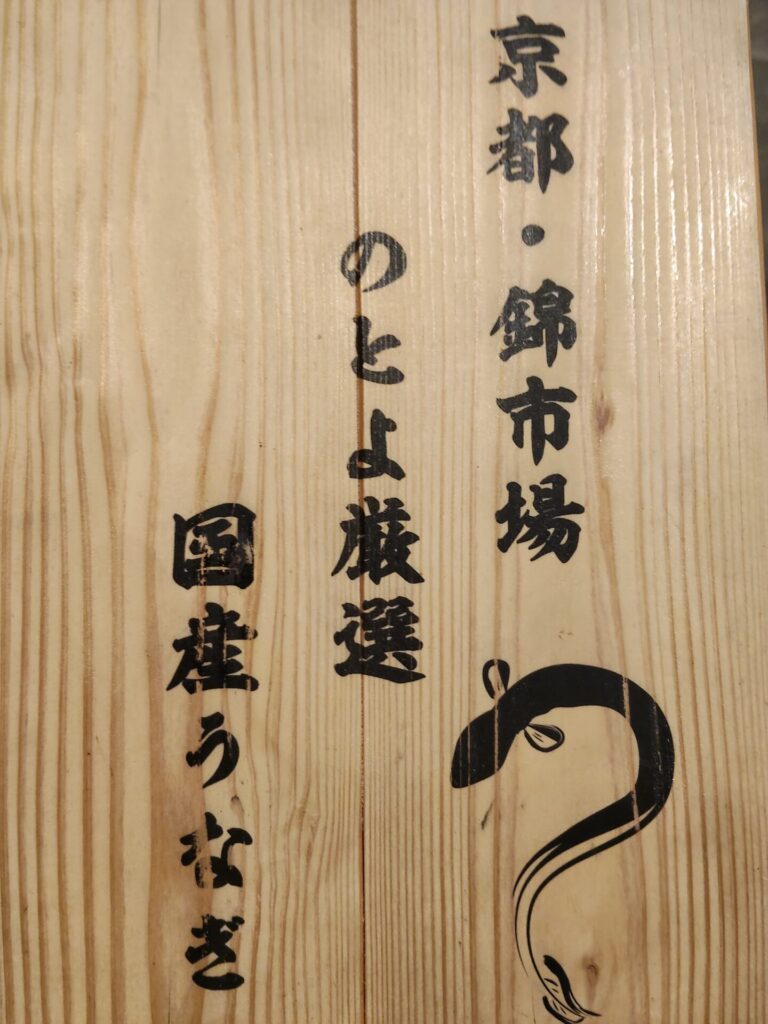 京都・錦市場
のとよ厳選
国産うなぎ